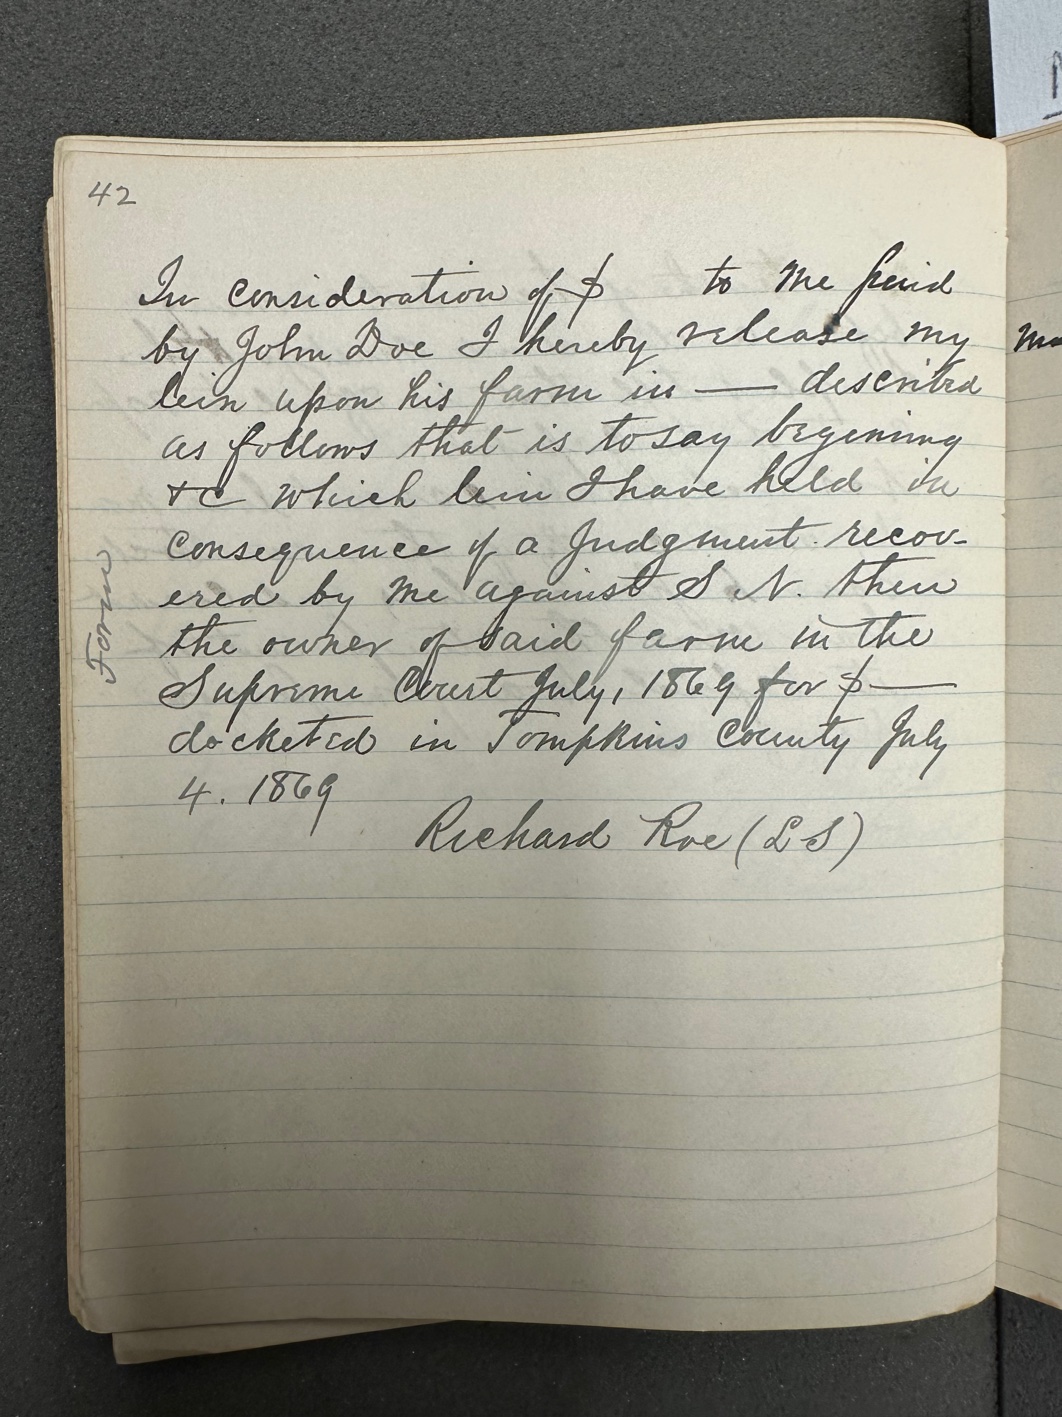 42
In consideration of $ to me paid
by John Doe I hereby release my
lein upon his farm in — described
as follows that is to say begining
&c which lein I have held in
consequence of a Judgment recov-
ered by me against S. N. then
the owner of said farm in the
Supreme Court July, 1869 for $—
docketed in Tompkins County July
4. 1869
Richard Roe (LS)
Form